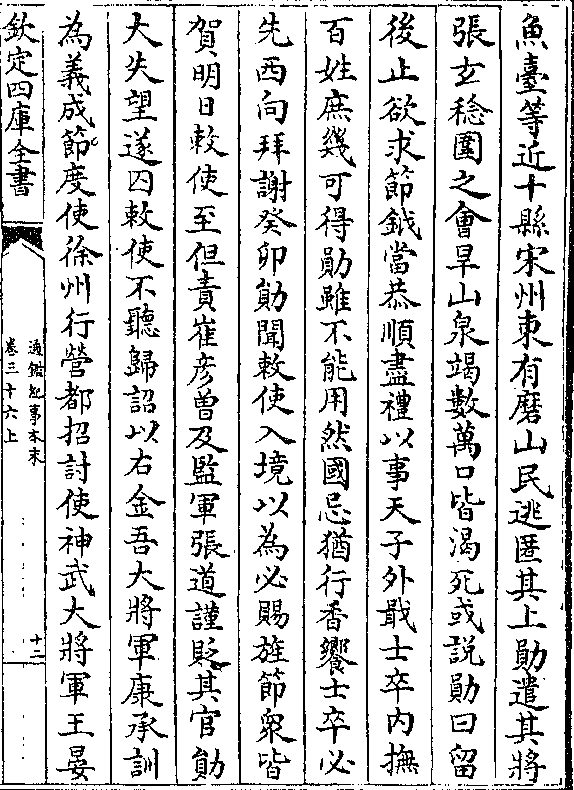 魚臺等近十縣宋州東有磨山民逃匿其上勛遣其將
張玄稔圍之會旱山泉竭數萬口皆渴死或說勛曰留
後止欲求節鉞當恭順盡禮以事天子外戢士卒内撫
百姓庶幾可得勛雖不能用然國忌猶行香饗士卒必
先西向拜謝癸卯勛聞敕使入境以為必賜旌節衆皆
賀明日敕使至但責崔彦曾及監軍張道謹貶其官勛
大失望遂囚敕使不聽歸詔以右金吾大將軍康承訓
為義成節度使徐州行營都招討使神武大將軍王晏
欽定四庫全書
通鑑紀事本末
卷三十六上
十二